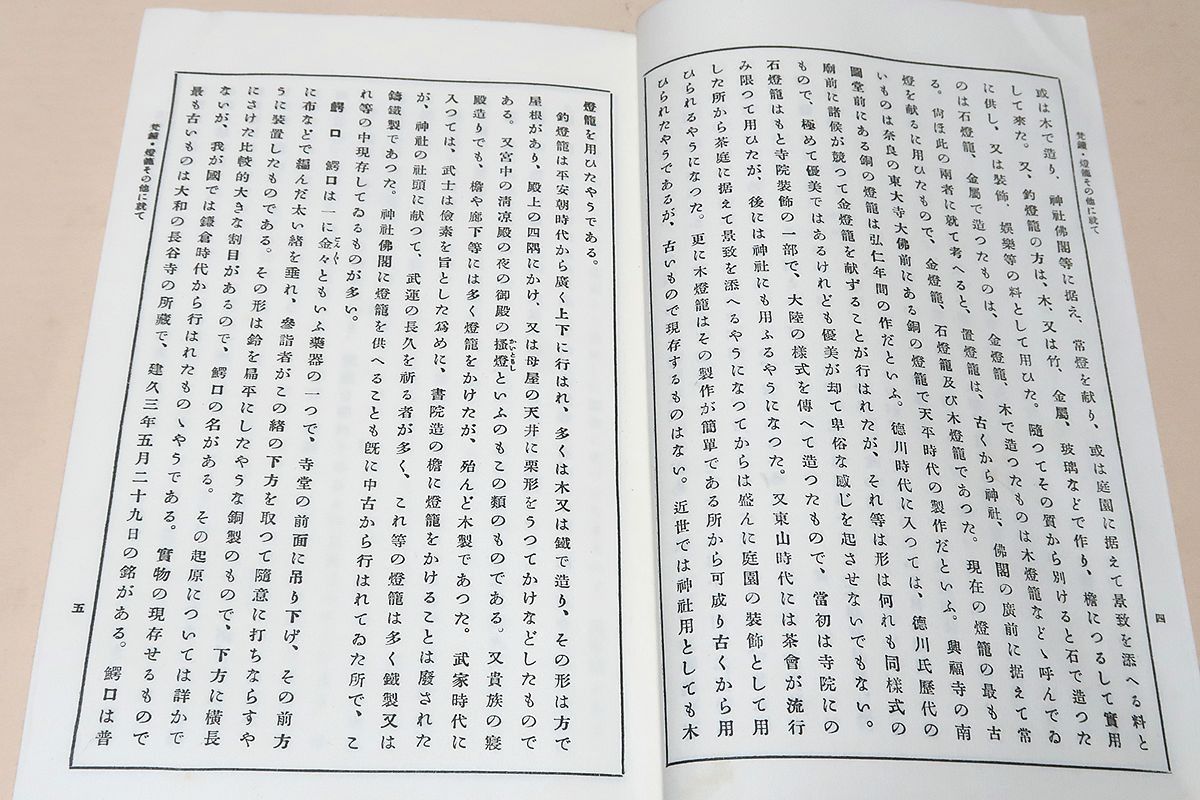 梵鐘・燈籠その他に就て
四
或は木で造り、神社佛閣等に据え、常燈を献り、或は庭園に据えて景致を添へる料と
して來た。又、釣燈籠の方は、木、又は竹、金屬、玻璃などで作り、檐につるして實用
に供し、又は裝飾、娯樂等の料として用ひた。隨つてその質から別けると石で造つた
のは石燈籠、金屬で造つたものは、金燈籠、木で造つたものは木燈籠などゝ呼んでゐ
る。尙ほ此の兩者に就て考へると、置燈籠は、古くから神社、佛閣の廣前に据えて常
燈を献るに用ひたもので、金燈籠、石燈籠及び木燈籠であつた。現在の燈籠の最も古
いものは奈良の東大寺大佛前にある銅の燈籠で天平時代の製作だといふ。興福寺の南
圓堂前にある銅の燈籠は弘仁年間の作だといふ。德川時代に入つては、德川氏歷代の
廟前に諸侯が競つて金燈籠を献ずることが行はれたが、それ等は形は何れも同樣式の
もので、極めて優美ではあるけれども優美が却て卑俗な感じを起させないでもない。
石燈籠はもと寺院裝飾の一部で、大陸の樣式を傳へて造つたもので、當初は寺院にの
み限つて用ひたが、後には神社にも用ふるやうになつた。又東山時代には茶會が流行
した所から茶庭に据えて景致を添へるやうになつてからは盛んに庭園の裝飾として用
ひられるやうになつた。更に木燈籠はその製作が簡單である所から可成り古くから用
ひられたやうであるが、古いもので現存するものはない。近世では神社用としても木
燈籠を用ひたやうである。
釣燈籠は平安朝時代から廣く上下に行はれ、多くは木又は鐵で造り、その形は方で
屋根があり、殿上の四隅にかけ、又は母屋の天井に栗形をうつてかけなどしたもので
ある。又宮中の清凉殿の夜の御殿の搔燈といふのもこの類のものである。又貴族の寢
殿造りでも、檐や廊下等には多く燈籠をかけたが、殆んど木製であつた。武家時代に
入つては、武士は儉素を旨とした爲めに、書院造の檐に燈籠をかけることは廢された
が、神社の社頭に献つて、武運の長久を祈る者が多く、これ等の燈籠は多く鐵製又は
鑄鐵製であつた。神社佛閣に燈籠を供へることも旣に中古から行はれてゐた所で、こ
れ等の中現存してゐるものが多い。
鰐口 鰐口は一に金々ともいふ藥器の一つで、寺堂の前面に吊り下げ、その前方
に布などで編んだ太い緒を垂れ、參詣者がこの緒の下方を取つて隨意に打ちならすや
うに裝置したものである。その形は鈴を扁平にしたやうな銅製のもので、下方に橫長
にさけた比較的大きな割目があるので、鰐口の名がある。その起原については詳かで
ないが、我が國では鎌倉時代から行はれたものゝやうである。實物の現存せるもので
最も古いものは大和の長谷寺の所藏で、建久三年五月二十九日の銘がある。鰐口は普
梵鐘・燈籠その他に就て
五